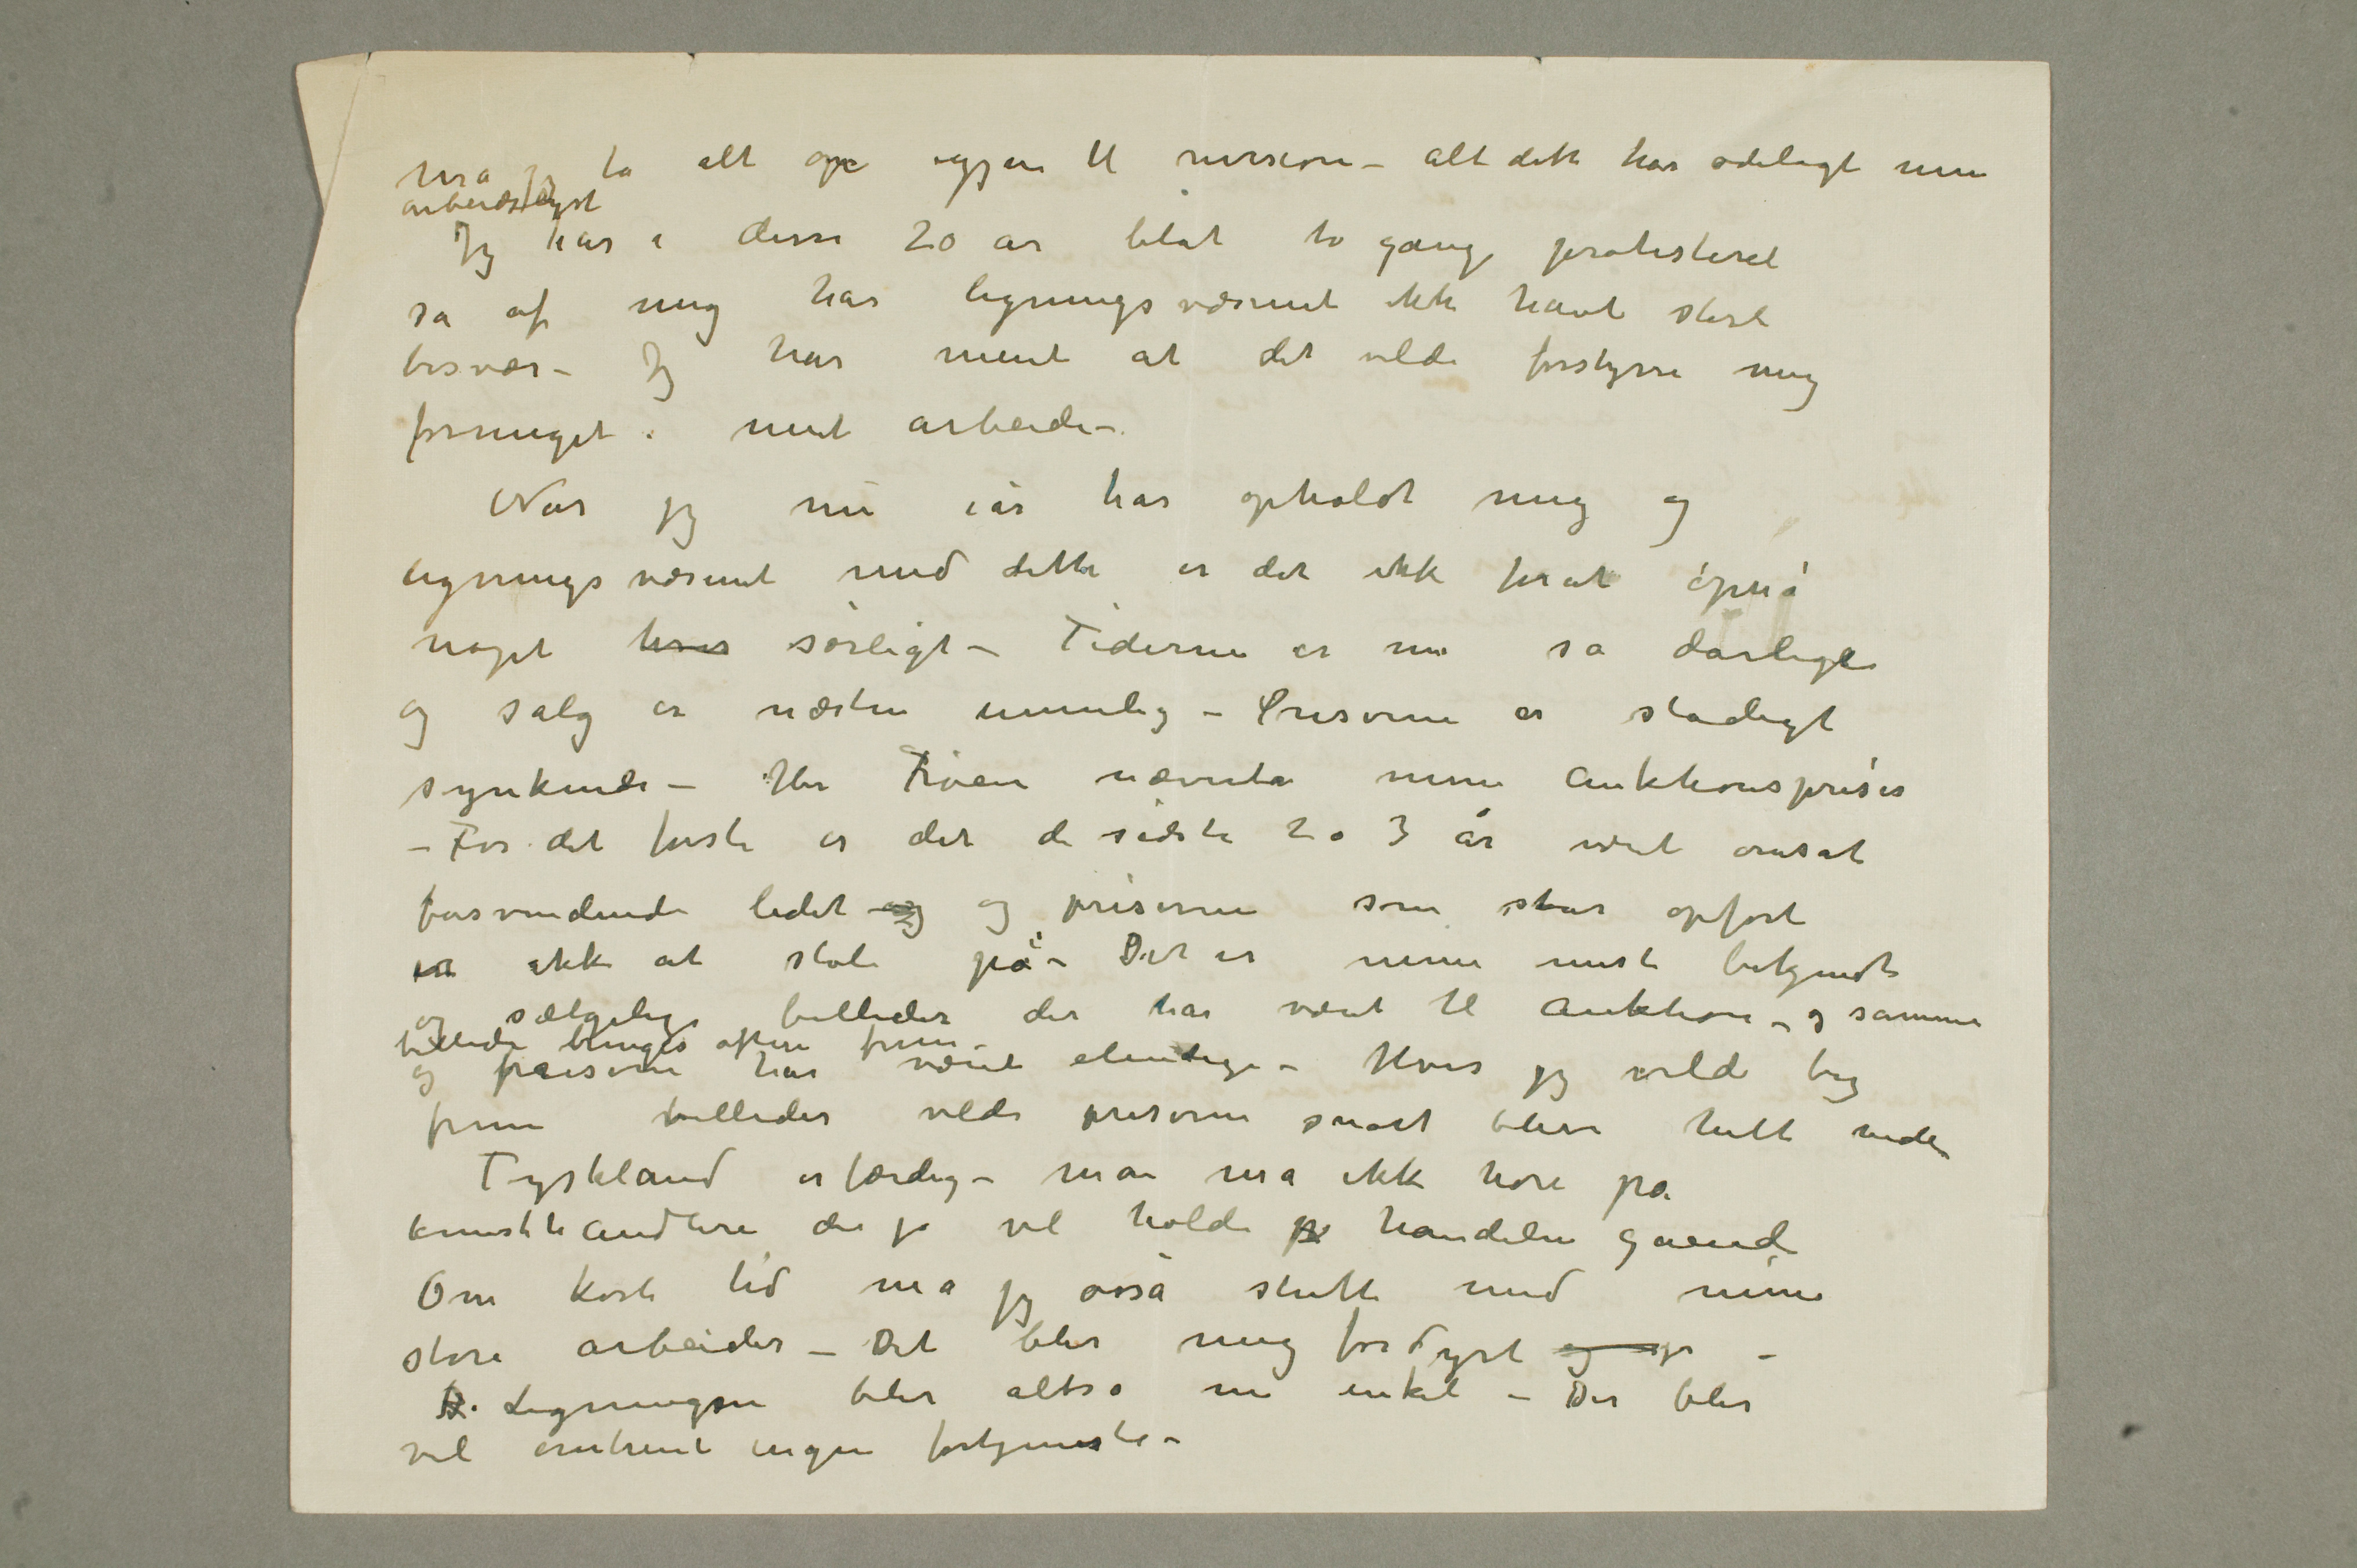 må jeg ta alt op igjen til revision – alt dette har ødelagt min
arbeidslyst
Jeg har i disse 20 år blåt to gange protisteret
så af mig har ligningsvæsenet ikke havt stort
besvær – Jeg har ment at det vilde forstyrre mig
formeget i mit arbeide –
Når jeg nu iår har opholdt mig og
ligningsvæsenet med dette er det ikke forat opnå
noget hver særligt – Tiderne er nu så dårlige
og salg er næsten umulig – Priserne er stadigt
synkende – Hr nævnte mine Auktionspriser
– For det første er det de sidste 2 a 3 år vært omsat
forsvindende lidet og og priserne som står opført
er ikke at stole på – Det er mine mest bekjendte
og sælgelige billeder der har været til Auktion – og samme
billeder bringes oftere frem –
og priserne har været elendige – Hvis jeg vilde
frem billeder vilde priserne snart blive helt nede
Tyskland er færdig – man må ikke høre på
kunsthandlere der jo vil holde handelen gaaende
Om kort tid må jeg også slutte med mine
store arbeider – Det blir mig for dyrt og –
Ligningen blir altså nu enkel – Der blir
vel omtrent ingen fortjeneste –